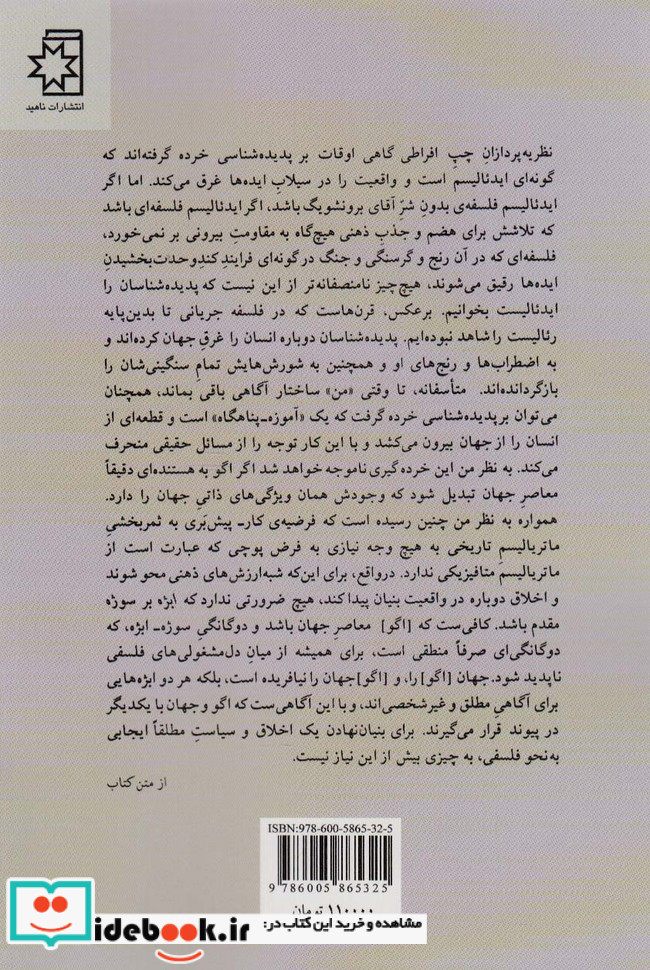 انتشارات ناهید
نظریه‌پردازانِ چپِ افراطی گاهی اوقات بر پدیده‌شناسی خرده گرفته‌اند که
گونه‌ای ایدئالیسم است و واقعیت را در سیلابِ ایده‌ها غرق می‌کند. اما اگر
ایدئالیسم فلسفه‌ی بدونِ شرِّ آقای برونشویگ باشد، اگر ایدئالیسم فلسفه‌ای باشد
که تلاشش برای هضم و جذبِ ذهنی هیچ‌گاه به مقاومتِ بیرونی بر نمی‌خورد،
فلسفه‌ای که در آن رنج و گرسنگی و جنگ در گونه‌ای فرایندِ کندِ وحدت‌بخشیدنِ
ایده‌ها رقیق می‌شوند، هیچ‌چیز نامنصفانه‌تر از این نیست که پدیده‌شناسان را
ایدئالیست بخوانیم. برعکس، قرن‌هاست که در فلسفه جریانی تا بدین‌پایه
رئالیست را شاهد نبوده‌ایم. پدیده‌شناسان دوباره انسان را غرقِ جهان کرده‌اند و
به اضطراب‌ها و رنج‌های او و همچنین به شورش‌هایش تمامِ سنگینی‌شان را
بازگردانده‌اند. متأسفانه، تا وقتی «من» ساختار آگاهی باقی بماند، همچنان
می‌توان بر پدیده‌شناسی خرده گرفت که یک «آموزه-پناهگاه» است و قطعه‌ای از
انسان را از جهان بیرون می‌کشد و با این کار توجه را از مسائل حقیقی منحرف
می‌کند. به نظر من این خرده‌گیری ناموجه خواهد شد اگر اگو به هستنده‌ای دقیقاً
معاصرِ جهان تبدیل شود که وجودش همان ویژگی‌های ذاتیِ جهان را دارد.
همواره به نظر من چنین رسیده است که فرضیه‌ی کار-پیش‌بَری به ثمربخشیِ
ماتریالیسمِ تاریخی به هیچ وجه نیازی به فرض پوچی که عبارت است از
ماتریالیسمِ متافیزیکی ندارد. درواقع، برای این‌که شبه‌ارزش‌های ذهنی محو شوند
و اخلاق دوباره در واقعیت بنیان پیدا کند، هیچ ضرورتی ندارد که ابژه بر سوژه
مقدم باشد. کافی‌ست که [اگو] معاصرِ جهان باشد و دوگانگیِ سوژه-ابژه، که
دوگانگی‌ای صرفاً منطقی است، برای همیشه از میانِ دل‌مشغولی‌های فلسفی
ناپدید شود. جهان [اگو] را، و [اگو] جهان را نیافریده است، بلکه هر دو ابژه‌هایی
برای آگاهیِ مطلق و غیرشخصی‌اند، و با این آگاهی‌ست که اگو و جهان با یکدیگر
در پیوند قرار می‌گیرند. برای بنیان‌نهادن یک اخلاق و سیاستِ مطلقاً ایجابی
به‌نحو فلسفی، به چیزی بیش از این نیاز نیست.
از متن کتاب
ISBN:978-600-5865-32-5
9 786005 865325
۱۱۰۰۰۰ تومان
مشاهده و خرید این کتاب در:
idebook.ir